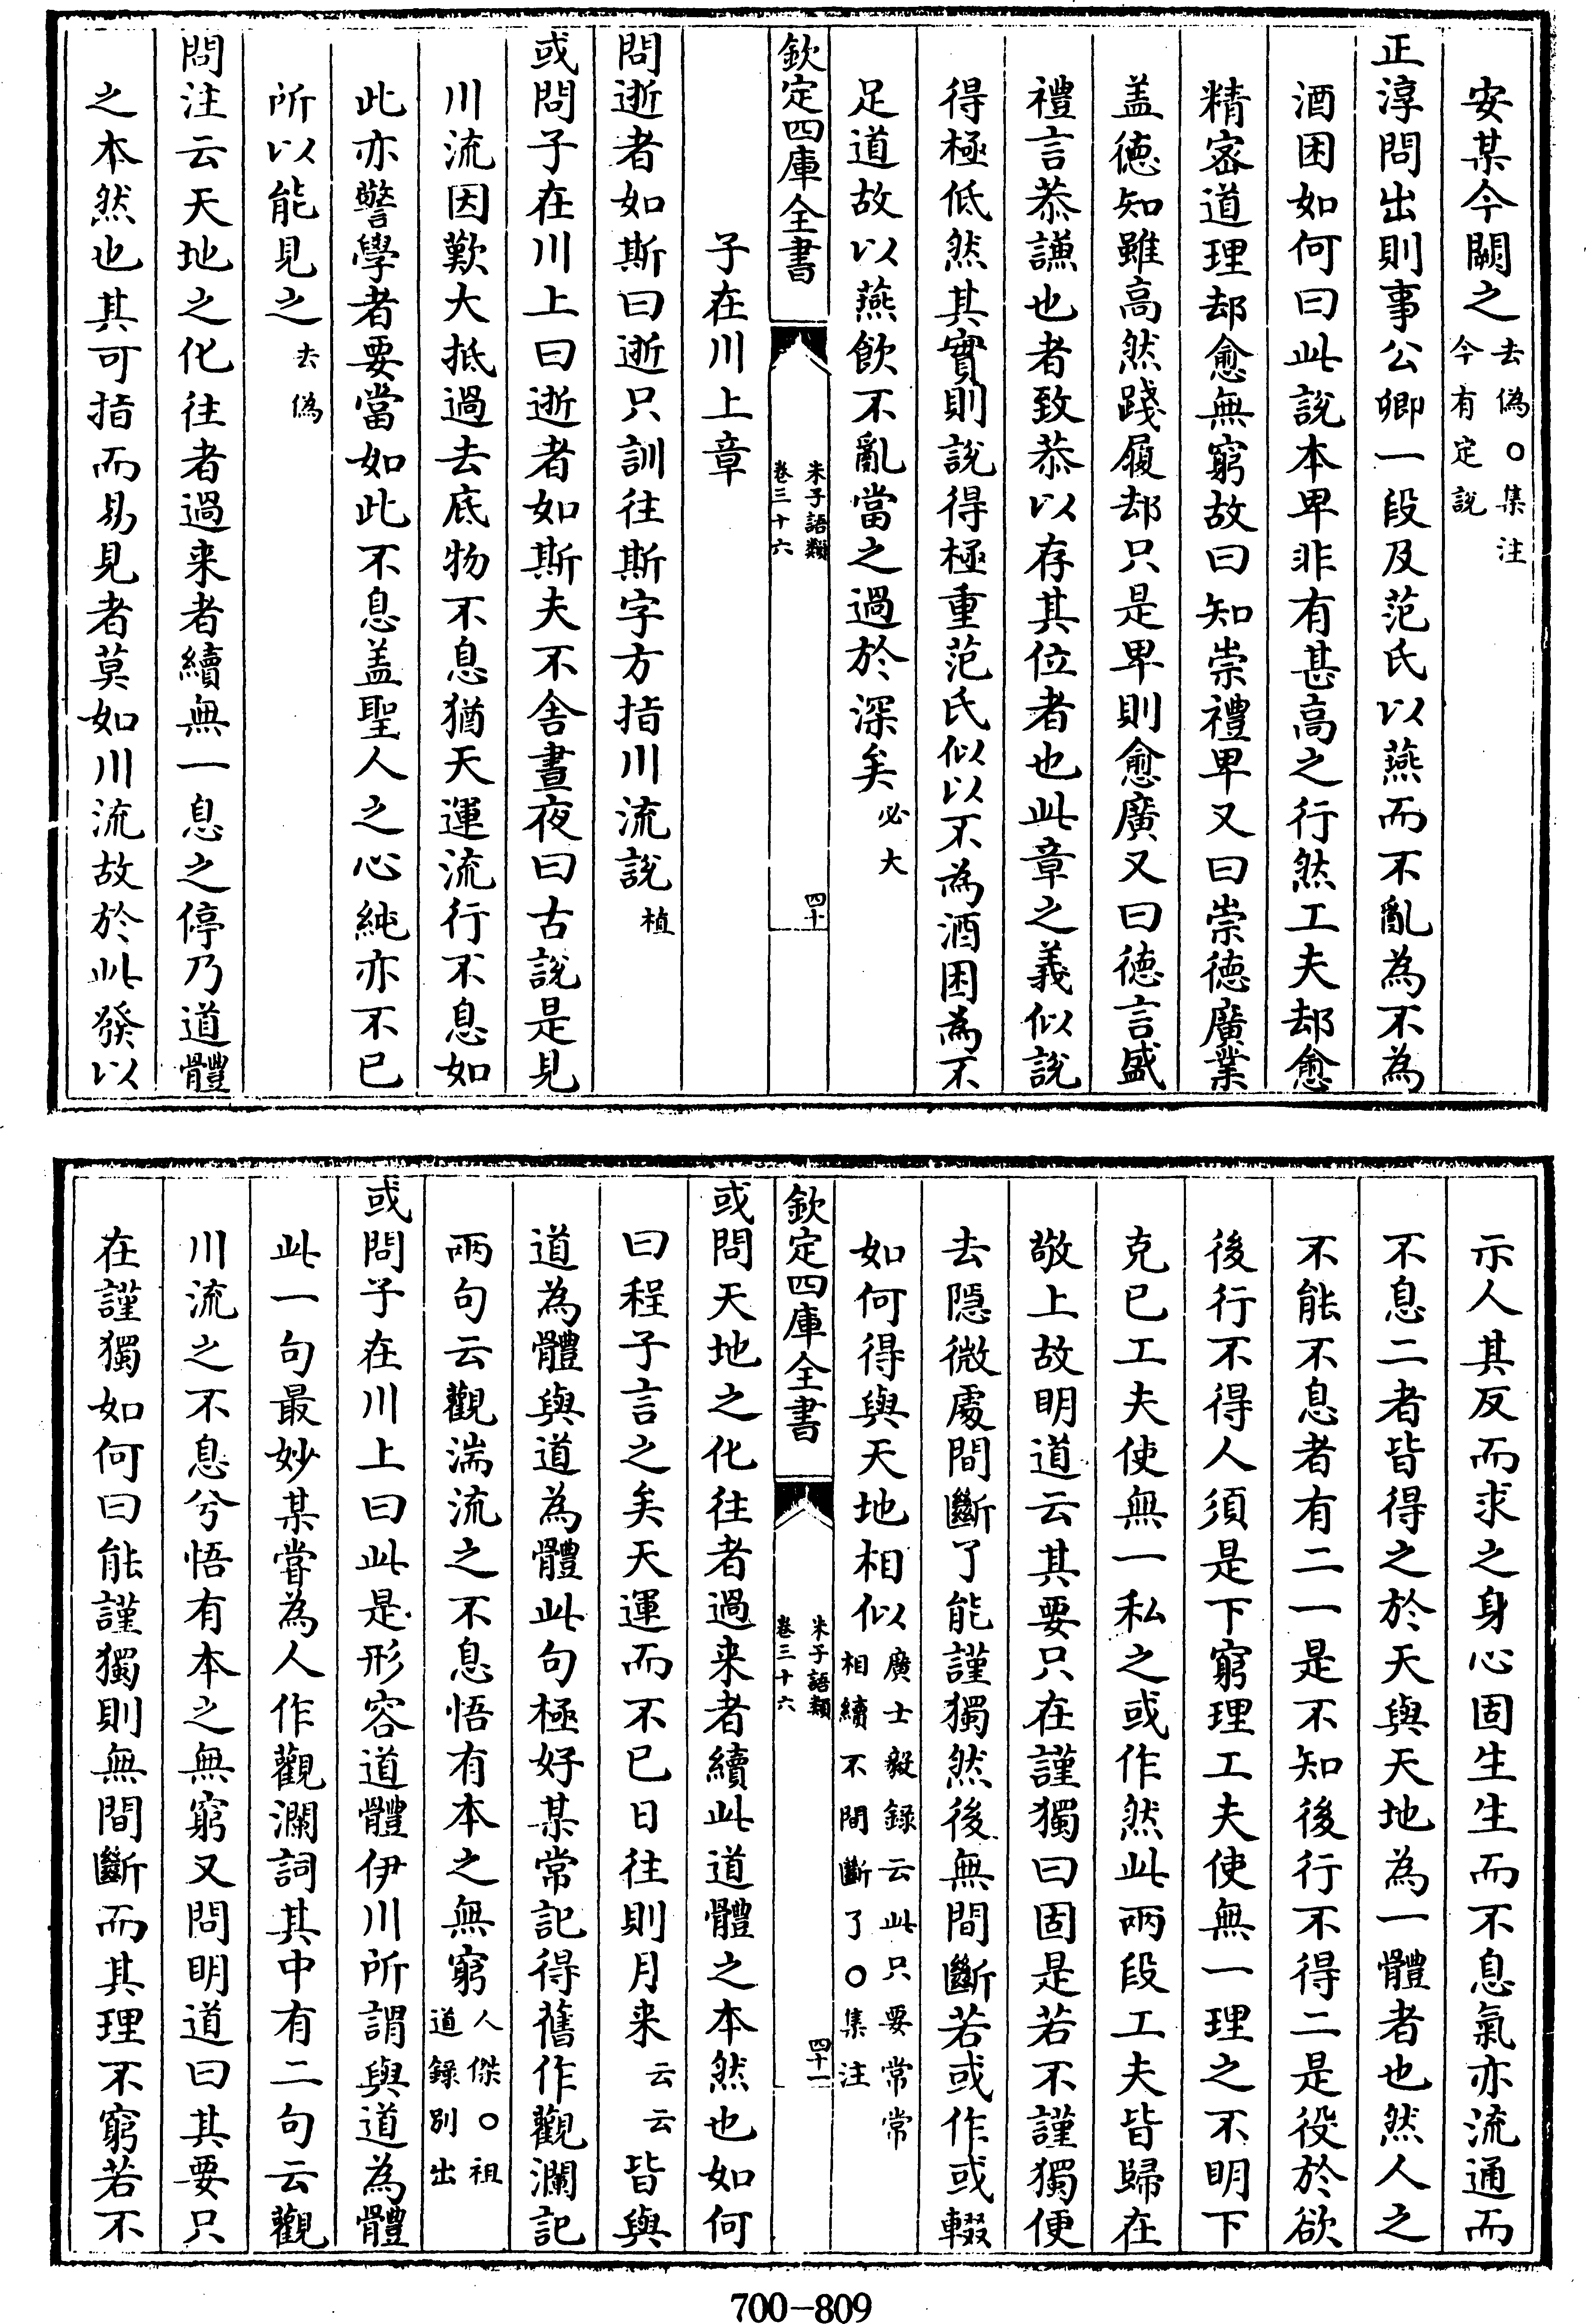 安某今闕之去偽○集注今有定說
正淳問出則事公卿一段及范氏以燕而不亂為不為
酒困如何曰此說本卑非有甚高之行然工夫却愈
精宻道理却愈無窮故曰知崇禮卑又曰崇徳廣業
盖徳知雖高然踐履却只是卑則愈廣又曰徳言盛
禮言恭謙也者致恭以存其位者也此章之義似說
得極低然其實則說得極重范氏似以不為酒困為不
足道故以燕飲不亂當之過於深矣必大
欽定四庫全書
朱子語類
卷三十六
四十
子在川上章
問逝者如斯曰逝只訓往斯字方指川流說植
或問子在川上曰逝者如斯夫不舍晝夜曰古說是見
川流因歎大抵過去底物不息猶天運流行不息如
此亦警學者要當如此不息盖聖人之心純亦不已
所以能見之去偽
問注云天地之化往者過来者續無一息之停乃道體
之本然也其可指而易見者莫如川流故於此發以
示人其反而求之身心固生生而不息氣亦流通而
不息二者皆得之於天與天地為一體者也然人之
不能不息者有二一是不知後行不得二是役於欲
後行不得人須是下窮理工夫使無一理之不明下
克已工夫使無一私之或作然此兩段工夫皆歸在
敬上故明道云其要只在謹獨曰固是若不謹獨便
去隠微處間斷了能謹獨然後無間斷若或作或輟
如何得與天地相似廣士毅録云此只要常常相續不間斷了○集注
欽定四庫全書
朱子語類
卷三十六
四十一
或問天地之化往者過来者續此道體之本然也如何
曰程子言之矣天運而不已日往則月来云云皆與
道為體與道為體此句極好某常記得舊作觀瀾記
兩句云觀湍流之不息悟有本之無窮人傑○祖道録別出
或問子在川上曰此是形容道體伊川所謂與道為體
此一句最妙某甞為人作觀瀾詞其中有二句云觀
川流之不息兮悟有本之無窮又問明道曰其要只
在謹獨如何曰能謹獨則無間斷而其理不窮若不
700-809